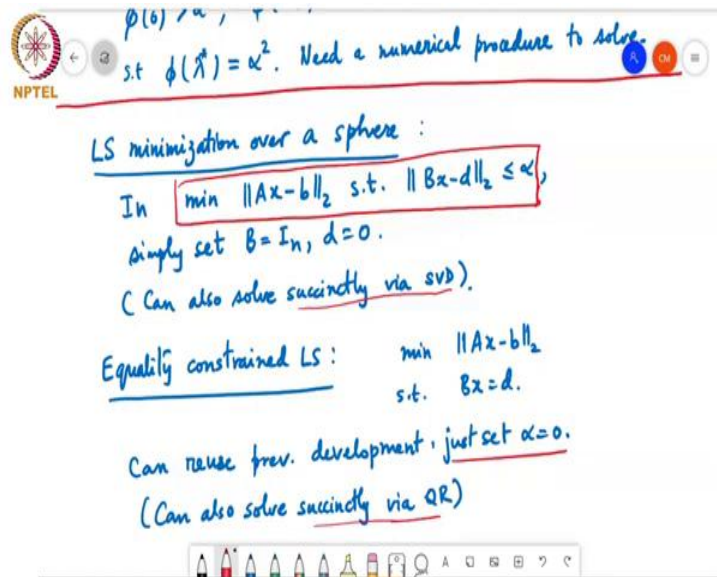 φ(0) > α
s.t φ(λ*) = α². Need a numerical procedure to solve.
NPTEL
CM
LS minimization over a sphere :
In min ||Ax-b||₂ s.t. ||Bx-d||₂ ≤ α,
simply set B = Iₙ, d=0.
( Can also solve succinctly via SVD).
Equality constrained LS : min ||Ax-b||₂
s.t. Bx=d.
Can reuse prev. development, just set α=0.
(Can also solve succinctly via QR)